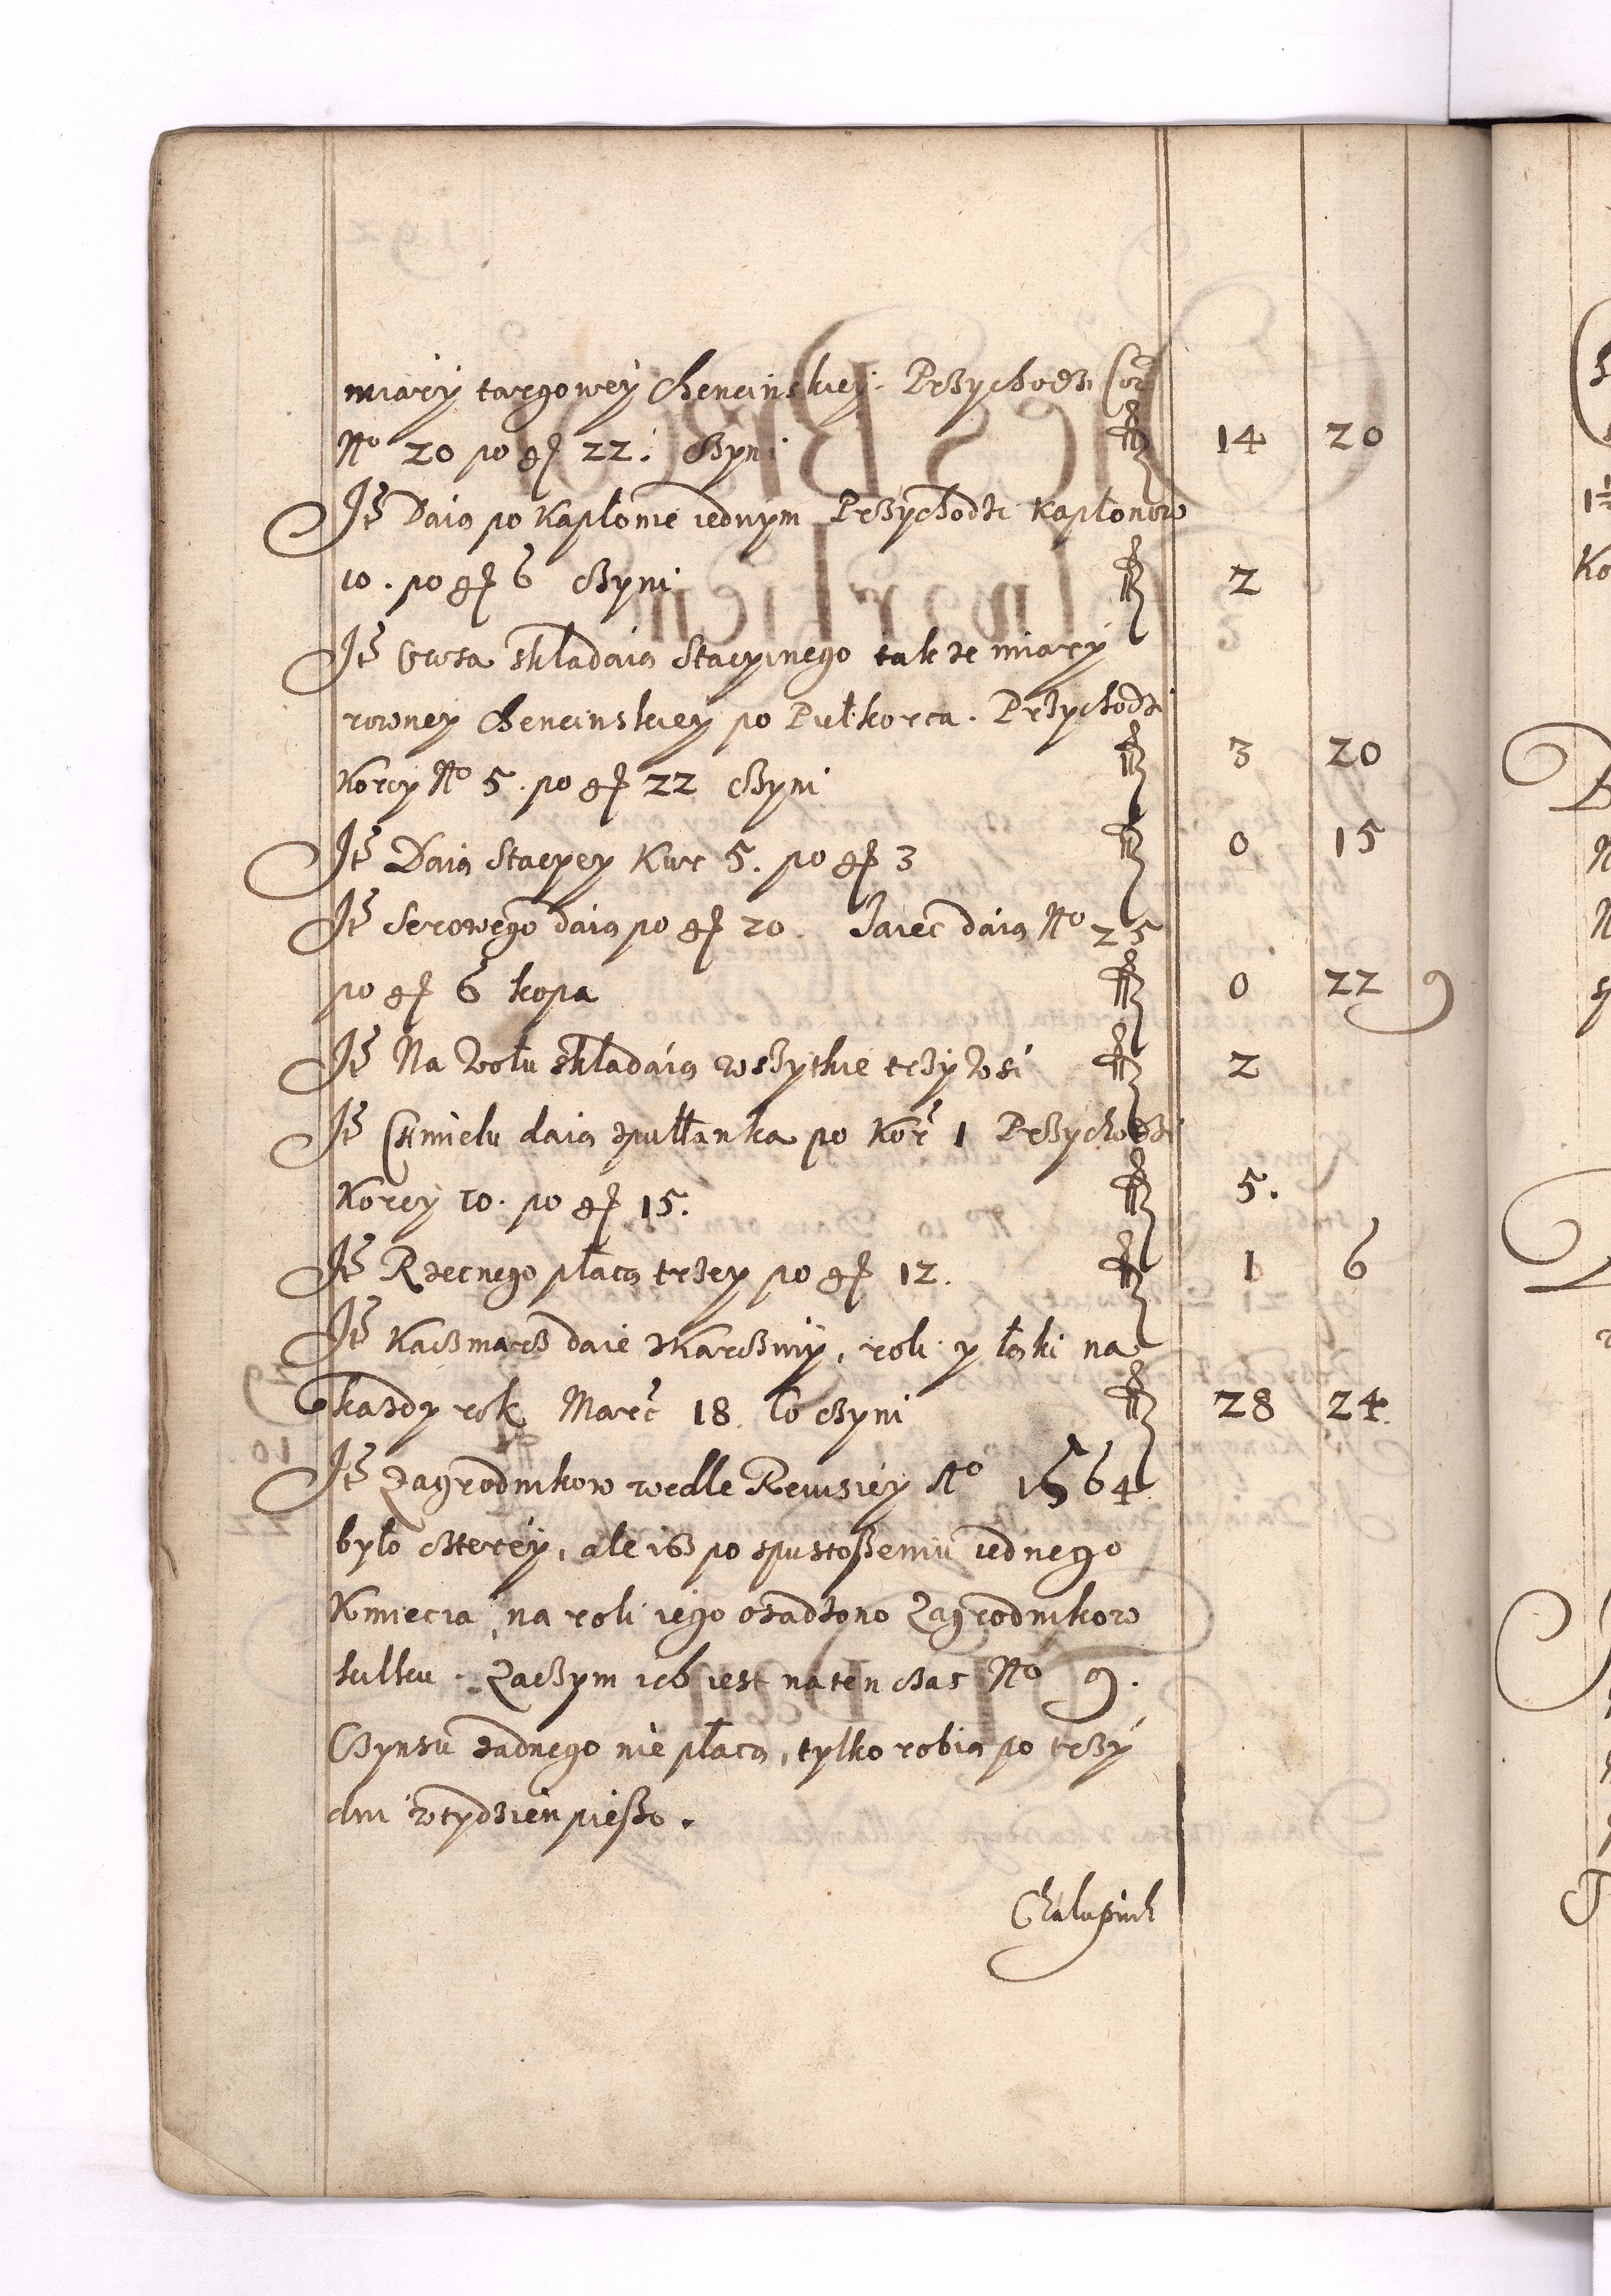 miary targowey Chencinskiey. Przychodzi Cor
No 20 po gr 22. czyni fl 14 20
It Daią po Kapłonie iednym Przychodzi Kapłonow
10. po gr 6 czyni fl 2
It Owsa składaią Stacyinego takze miary
rowney Chencinskiey po Pułkorca. Przychodzi
Korcy No 5. po gr 22 czyni fl 3 20
It Daią Stacyey Kur 5. po gr 3 fl 0 15
It Serowego daią po gr 20. Jaiec daią No 25
po gr 6 kopa fl 0 22 9
It Na Wołu składaią wszytkie trzy wsi fl 2
It Chmielu daią zpułłanka po Kor 1 Przychodzi
Korcy 10. po gr 15. fl 5.
It Rzecnego płacą trzey po gr 12. fl 1 6
It Kaczmarz daie zKarczmy, roli y łąki na
kazdy rok Marc 18. to czyni fl 28 24.
It Zagrodnikow wedle Rewisiey Ao 1564
było czterey, ale isz po spustoszeniu iednego
Kmiecia, na roli iego osadzono Zagrodnikow
kulku. Zaczym ich iest na ten czas No 9.
Czynsu zadnego nie płacą, tylko robią po trzy
dni wtydzien pieszo.
Chalupnik